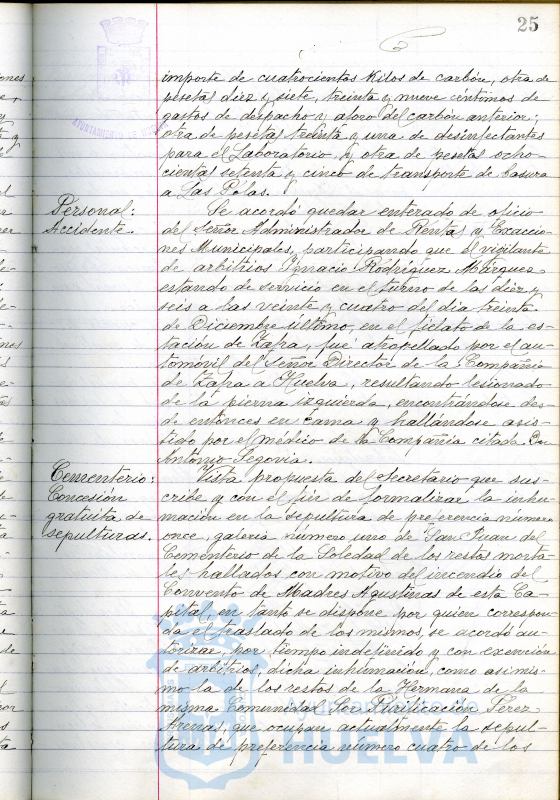 25
importe de cuatrocientos kilos de carbón, otra de
pesetas diez y siete, treinta y nueve céntimos de
gastos de despacho y aforo del carbón anterior;
otra de pesetas treinta y una de desinfectantes
para el Laboratorio, y otra de pesetas ocho-
cientas setenta y cinco de transporte de basura
a Las Pólas.
Personal:
Accidente.
Se acordó quedar enterado de oficio
del Señor Administrador de Rentas y Exaccio-
nes Municipales, participando que el vigilante
de arbitrios Ignacio Rodríguez Márquez
estando de servicio en el turno de las diez y
seis a las veinte y cuatro del dia treinta
de Diciembre último, en el fielato de la es-
tación de Zafra, fué atropellado por el au-
tomóvil del Señor Director de la Compañia
de Zafra a Huelva, resultando lesionado
de la pierna izquierda, encontrándose des-
de entonces en cama y hallándose asis-
tido por el médico de la Compañia citada Don
Antonio Segovia.
Cementerio:
Concesión
gratuita de
sepulturas.
Vista propuesta del Secretario que sus-
cribe y con el fin de formalizar la inhu-
mación en la sepultura de preferencia número
once, galeria número uno de San Juan del
Cementerio de la Soledad de los restos morta-
les hallados con motivo del incendio del
Convento de Madres Agustinas de esta Ca-
pital, en tanto se dispone por quien correspon-
da el traslado de los mismos, se acordó au-
torizar, por tiempo indefinido y con exención
de arbitrios, dicha inhumación, como asimis-
mo la de los restos de la Hermana de la
misma Comunidad Sor Purificación Pérez
Arenas, que ocupan actualmente la sepul-
tura de preferencia número cuatro de los
AYUNTAMIENTO DE
Ayuntamiento de
HUELVA